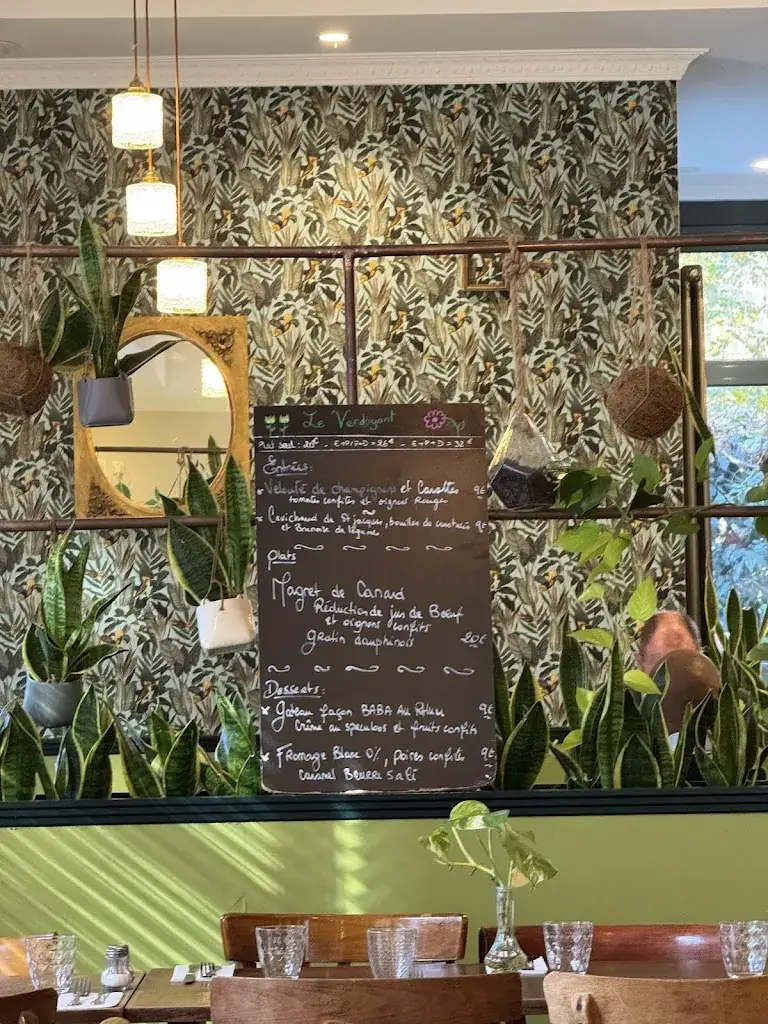 Le Verdoyant
Plat seul : 20€ . E+P/P+D = 26€ . E+P+D = 32€
Entrées :
* Velouté de champignons et Carottes 9€
tomates confites et oignons Rouges
* Cevichaud de St Jacques, bouillon de crustacés 9€
et Brunoise de légumes
Plats
Magret de Canard
Réduction de jus de Boeuf
et oignons confits
Gratin dauphinois 20€
Desserts :
* Gateau façon BABA AU RHUM 9€
Crème au speculoos et fruits confits
* Fromage Blanc 0%, poires confites 9€
Caramel BEURRE SALÉ